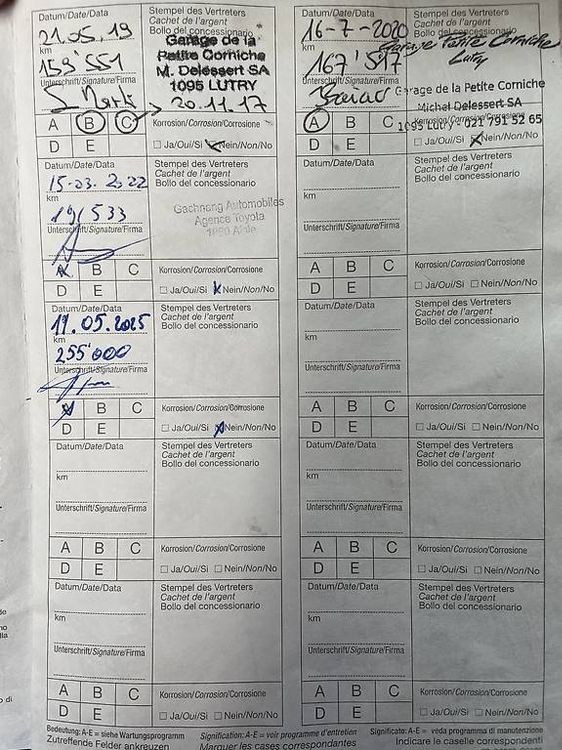 Datum/Date/Data
21.05.19
km
159'551
Unterschrift/Signature/Firma
Stempel des Vertreters
Cachet de l'argent
Bollo del concessionario
Garage de la
Petite Corniche
M. Delessert SA
1095 LUTRY
20.11.17
A B C
D E
Korrosion/Corrosion/Corrosione
Ja/Oui/Si Nein/Non/No
Datum/Date/Data
16-7-2020
km
167'517
Unterschrift/Signature/Firma
Stempel des Vertreters
Cachet de l'argent
Bollo del concessionario
Garage Petite Corniche
Lutry
Garage de la Petite Corniche
Michel Delessert SA
1095 Lutry - 021 791 52 65
A B C
D E
Korrosion/Corrosion/Corrosione
Ja/Oui/Si Nein/Non/No
Datum/Date/Data
15-03. 2022
km
Unterschrift/Signature/Firma
Stempel des Vertreters
Cachet de l'argent
Bollo del concessionario
Gachnang Automobiles
Agence Toyota
1860 Aigle
A B C
D E
Korrosion/Corrosion/Corrosione
Ja/Oui/Si Nein/Non/No
Datum/Date/Data
km
Unterschrift/Signature/Firma
Stempel des Vertreters
Cachet de l'argent
Bollo del concessionario
A B C
D E
Korrosion/Corrosion/Corrosione
Ja/Oui/Si Nein/Non/No
Datum/Date/Data
19.05.2025
km
255'000
Unterschrift/Signature/Firma
Stempel des Vertreters
Cachet de l'argent
Bollo del concessionario
A B C
D E
Korrosion/Corrosion/Corrosione
Ja/Oui/Si Nein/Non/No
Datum/Date/Data
km
Unterschrift/Signature/Firma
Stempel des Vertreters
Cachet de l'argent
Bollo del concessionario
A B C
D E
Korrosion/Corrosion/Corrosione
Ja/Oui/Si Nein/Non/No
Datum/Date/Data
km
Unterschrift/Signature/Firma
Stempel des Vertreters
Cachet de l'argent
Bollo del concessionario
A B C
D E
Korrosion/Corrosion/Corrosione
Ja/Oui/Si Nein/Non/No
Datum/Date/Data
km
Unterschrift/Signature/Firma
Stempel des Vertreters
Cachet de l'argent
Bollo del concessionario
A B C
D E
Korrosion/Corrosion/Corrosione
Ja/Oui/Si Nein/Non/No
Datum/Date/Data
km
Unterschrift/Signature/Firma
Stempel des Vertreters
Cachet de l'argent
Bollo del concessionario
A B C
D E
Korrosion/Corrosion/Corrosione
Ja/Oui/Si Nein/Non/No
Datum/Date/Data
km
Unterschrift/Signature/Firma
Stempel des Vertreters
Cachet de l'argent
Bollo del concessionario
A B C
D E
Korrosion/Corrosion/Corrosione
Ja/Oui/Si Nein/Non/No
Bedeutung: A-E = siehe Wartungsprogramm
Zutreffende Felder ankreuzen
Signification: A-E = voir programme d'entretien
Marquer les cases correspondantes
Significato: A-E = veda programma di manutenzione
Indicare le caselle corrispondenti